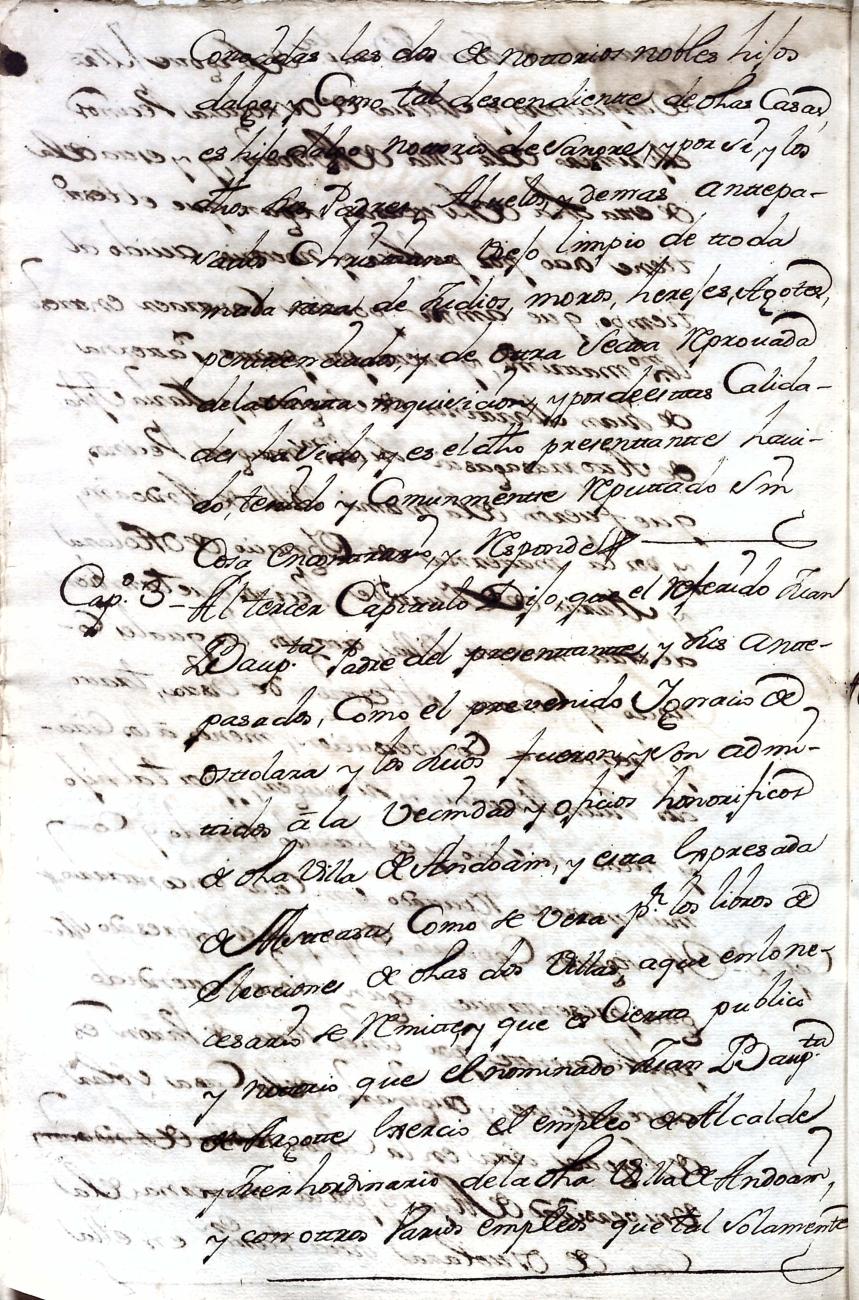 Conozidas las dos de nottorios nobles hijos
dalgo, y Como tal descendiente de dhas Casas,
es hijo dalgo nottorio de sangre, y por si, y los
dhos sus Padres, Abuelos, y demas antepa-
sados Christiano Viejo limpio de ttoda
mala raza de Judios, moros, herejes, Agotes,
penitenciados, y de ottra Secta Reprouada
de la Santta inquisicion, y por de esttas Calida-
des ha sido, y es el dho presenttante haui-
do, tenido y Comunmentte Reputtado sin
Cosa en contrario, y Responde
Capº. 3 - Al tercer Capittulo Dijo, que el referido Juan
Baup.ta Padre del presenttante, y sus antte-
pasados, Como el prevenido Ignacio de
Osttolara y los suios fueron, y son admi-
ttidos à la Vecindad y oficios honorificos
de dha Villa de Andoain, y estta Expresada
de Como se Vera p.r los libros de
Elecciones de dhas dos Villas, a que en lo ne-
cesario se Remitte, y que es Cierto publico
y nottorio que el nominado Juan Baup.ta
de Exercio el empleo de Alcalde
y Juez hordinario de la dha Villa de Andoain,
y con ottros Varios empleos que tal solamente